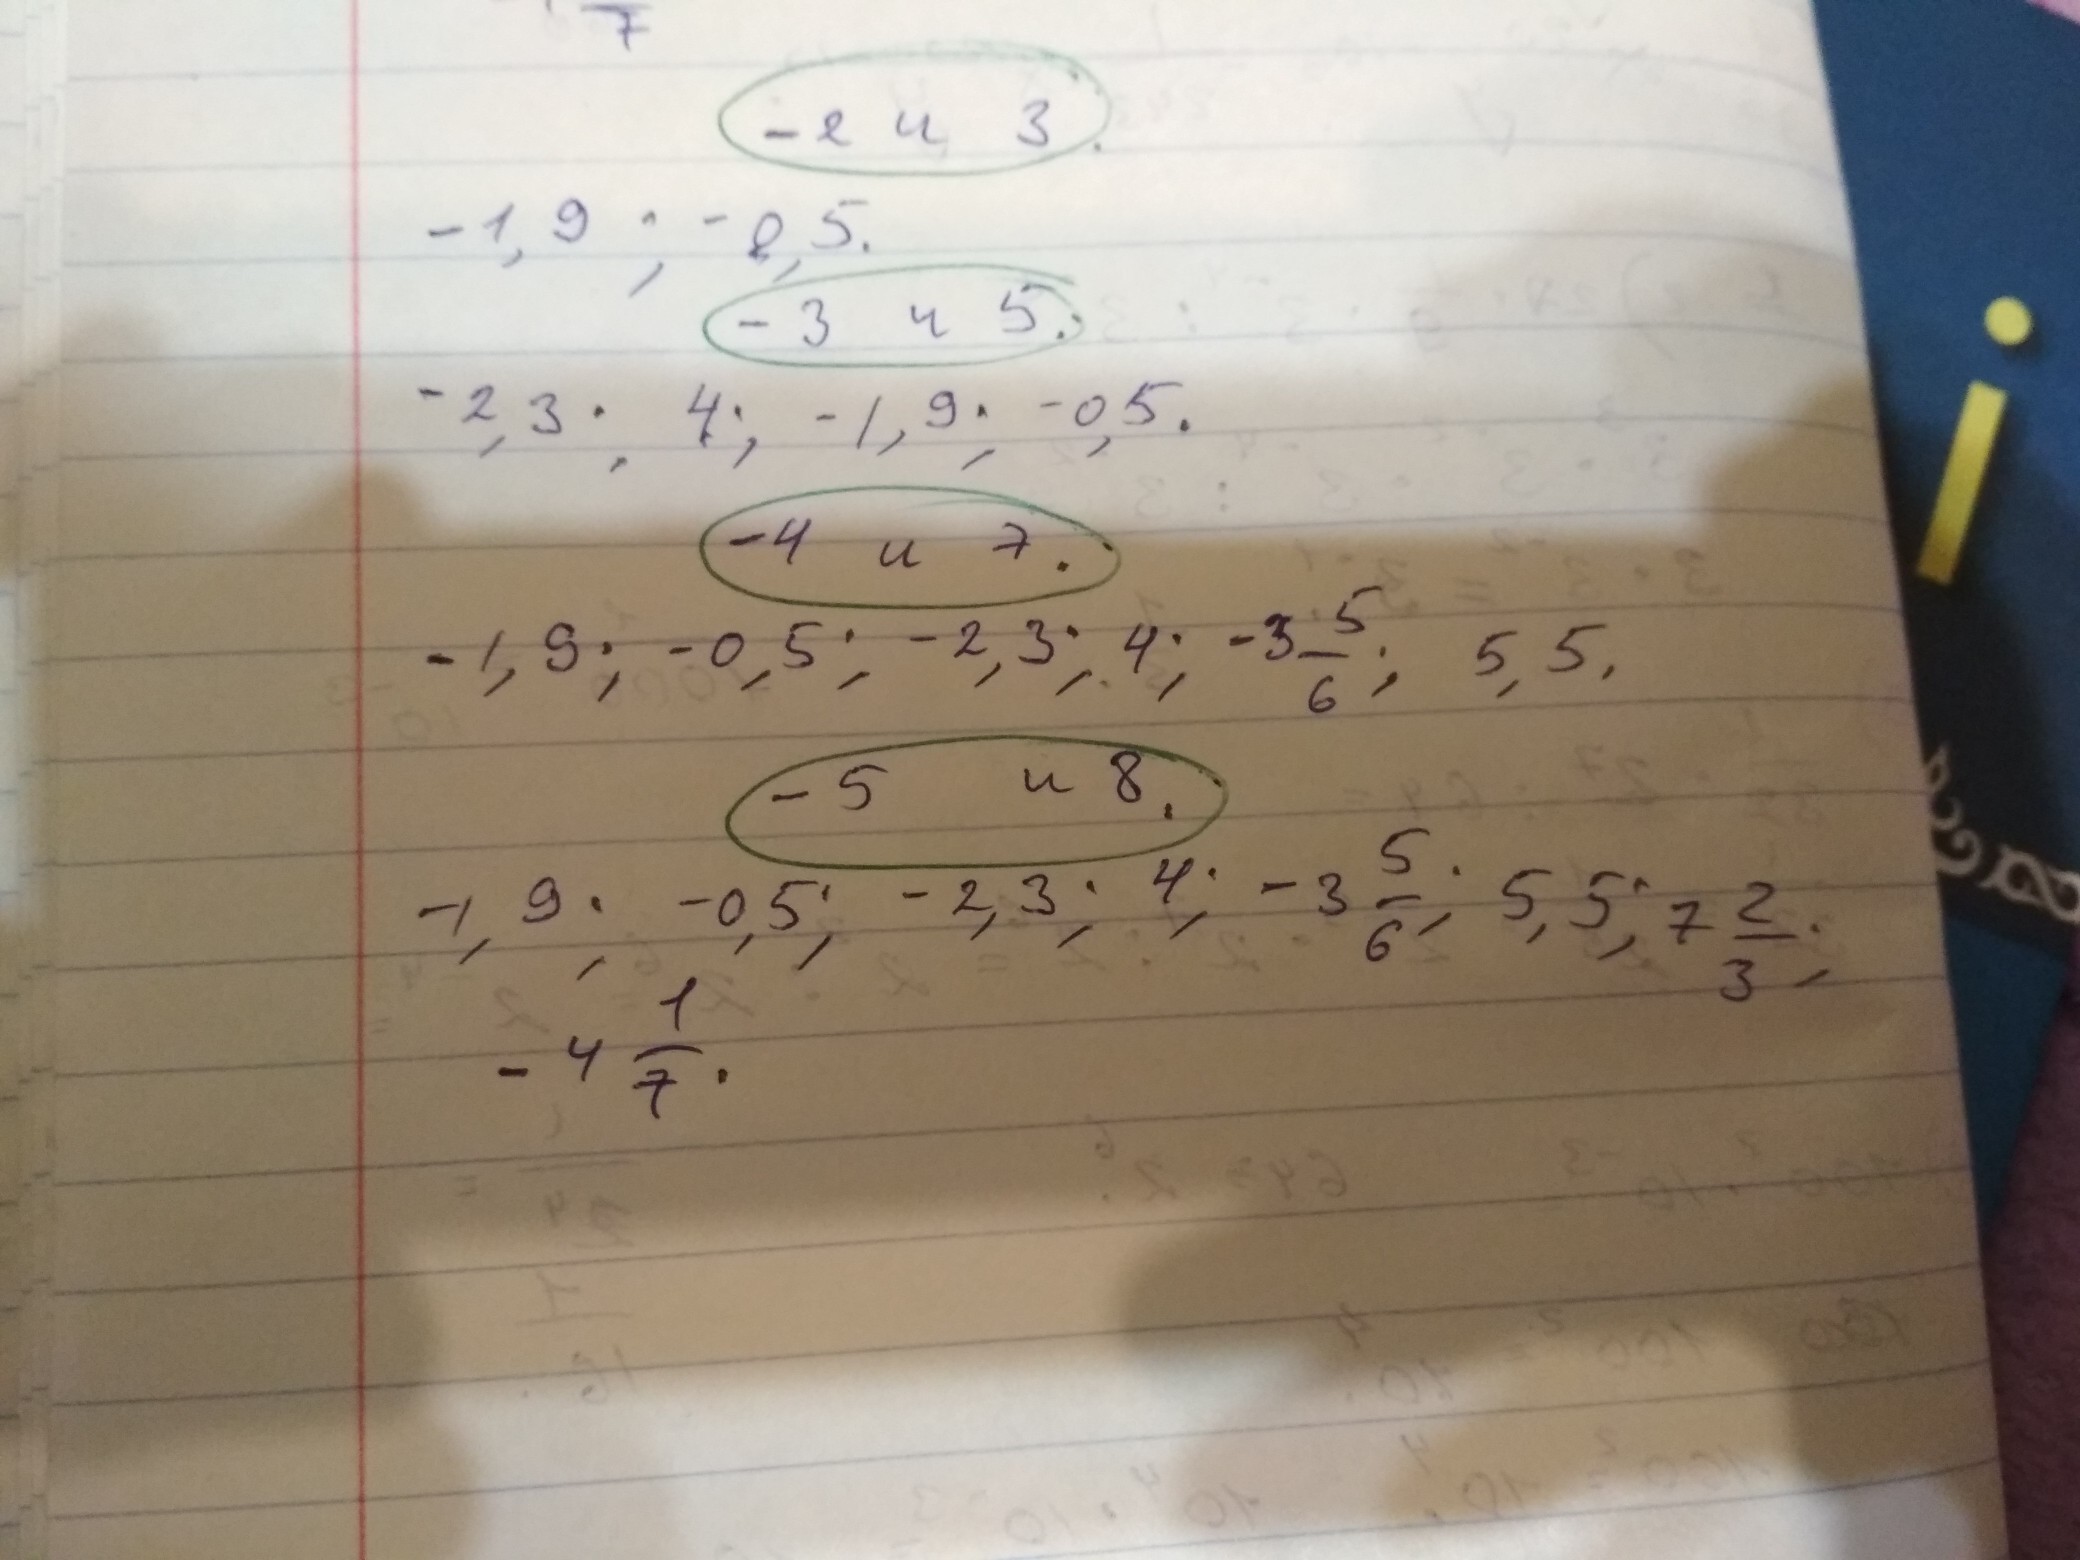 7
-2 и 3.
-1,9 ; -0,5.
-3 и 5.
-2,3 ; 4; -1,9; -0,5.
-4 и 7.
-1,9; -0,5; -2,3; 4; -3 5/6; 5,5.
-5 и 8.
-1,9; -0,5; -2,3; 4; -3 5/6; 5,5; 7 2/3;
-4 1/7.